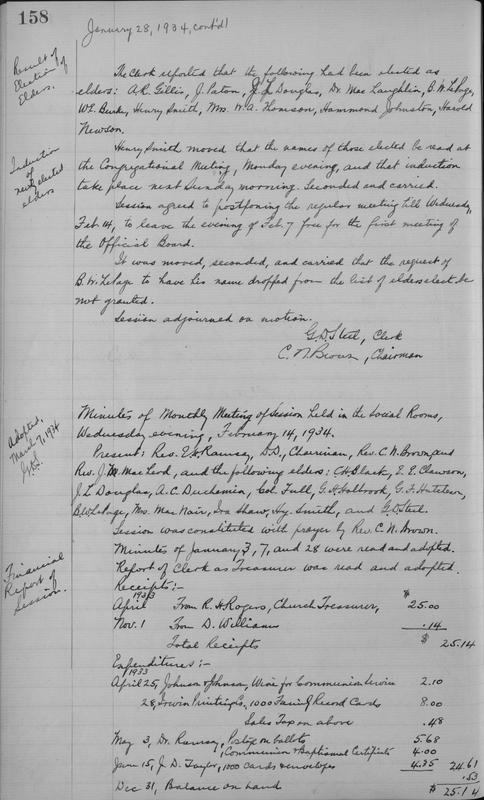 158
January 28, 1934, cont'd
Result of
Election of
Elders.
The Clerk reported that the following had been elected as
elders: A.R. Gillis, J. Paton, J.L. Douglas, Dr. MacLaughlin, B.W. LePage,
W.E. Burke, Henry Smith, Mrs. W.A. Thomson, Hammond Johnston, Harold
Newson.
Induction
of
newly elected
elders
Henry Smith moved that the names of those elected be read at
the Congregational Meeting, Monday evening, and that induction
take place next Sunday morning. Seconded and carried.
Session agreed to postponing the regular meeting till Wednesday,
Feb. 14, to leave the evening of Feb. 7 free for the first meeting of
the Official Board.
It was moved, seconded, and carried that the request of
B.W. LePage to have his name dropped from the list of elders elect, be
not granted.
Session adjourned on motion.
G.D. Steel, Clerk
C.N. Brown, Chairman
Adopted,
March 7, 1934
Minutes of Monthly Meeting of Session held in the Social Rooms,
Wednesday evening, February 14, 1934.
Present: Rev. Ramsay, D.D., Chairman, Rev. C.N. Brown, and
Rev. J.M. MacLeod, and the following elders: C.H. Black, E.E. Clawson,
J.L. Douglas, A.C. Duchemin, Col. Full, G.H. Holbrook, G.F. Hutcheson,
B.W. LePage, Mrs. MacNair, Ira Shaw, Hy. Smith, and G.D. Steel.
Session was constituted with prayer by Rev. C.N. Brown.
Minutes of January, 3, 7, and 28 were read and adopted.
Financial
Report of
Session.
Report of Clerk as Treasurer was read and adopted.
Receipts:-
1933
April From R.H. Rogers, Church Treasurer, $ 25.00
Nov. 1 From D. Williams .14
Total Receipts $ 25.14
Expenditures:-
1933
April 25, Johnson & Johnson, Wine for Communion Service 2.10
28, Irwin Printing Co., 1000 Family Record Cards 8.00
Sales Tax on above .48
May 3, Dr. Ramsay, Postage on ballots 5.68
, Communion & Baptismal Certificates 4.00
June 15, J.D. Taylor, 1000 cards & envelopes 4.35 24.61
Dec 31, Balance on hand .53
$ 25.14